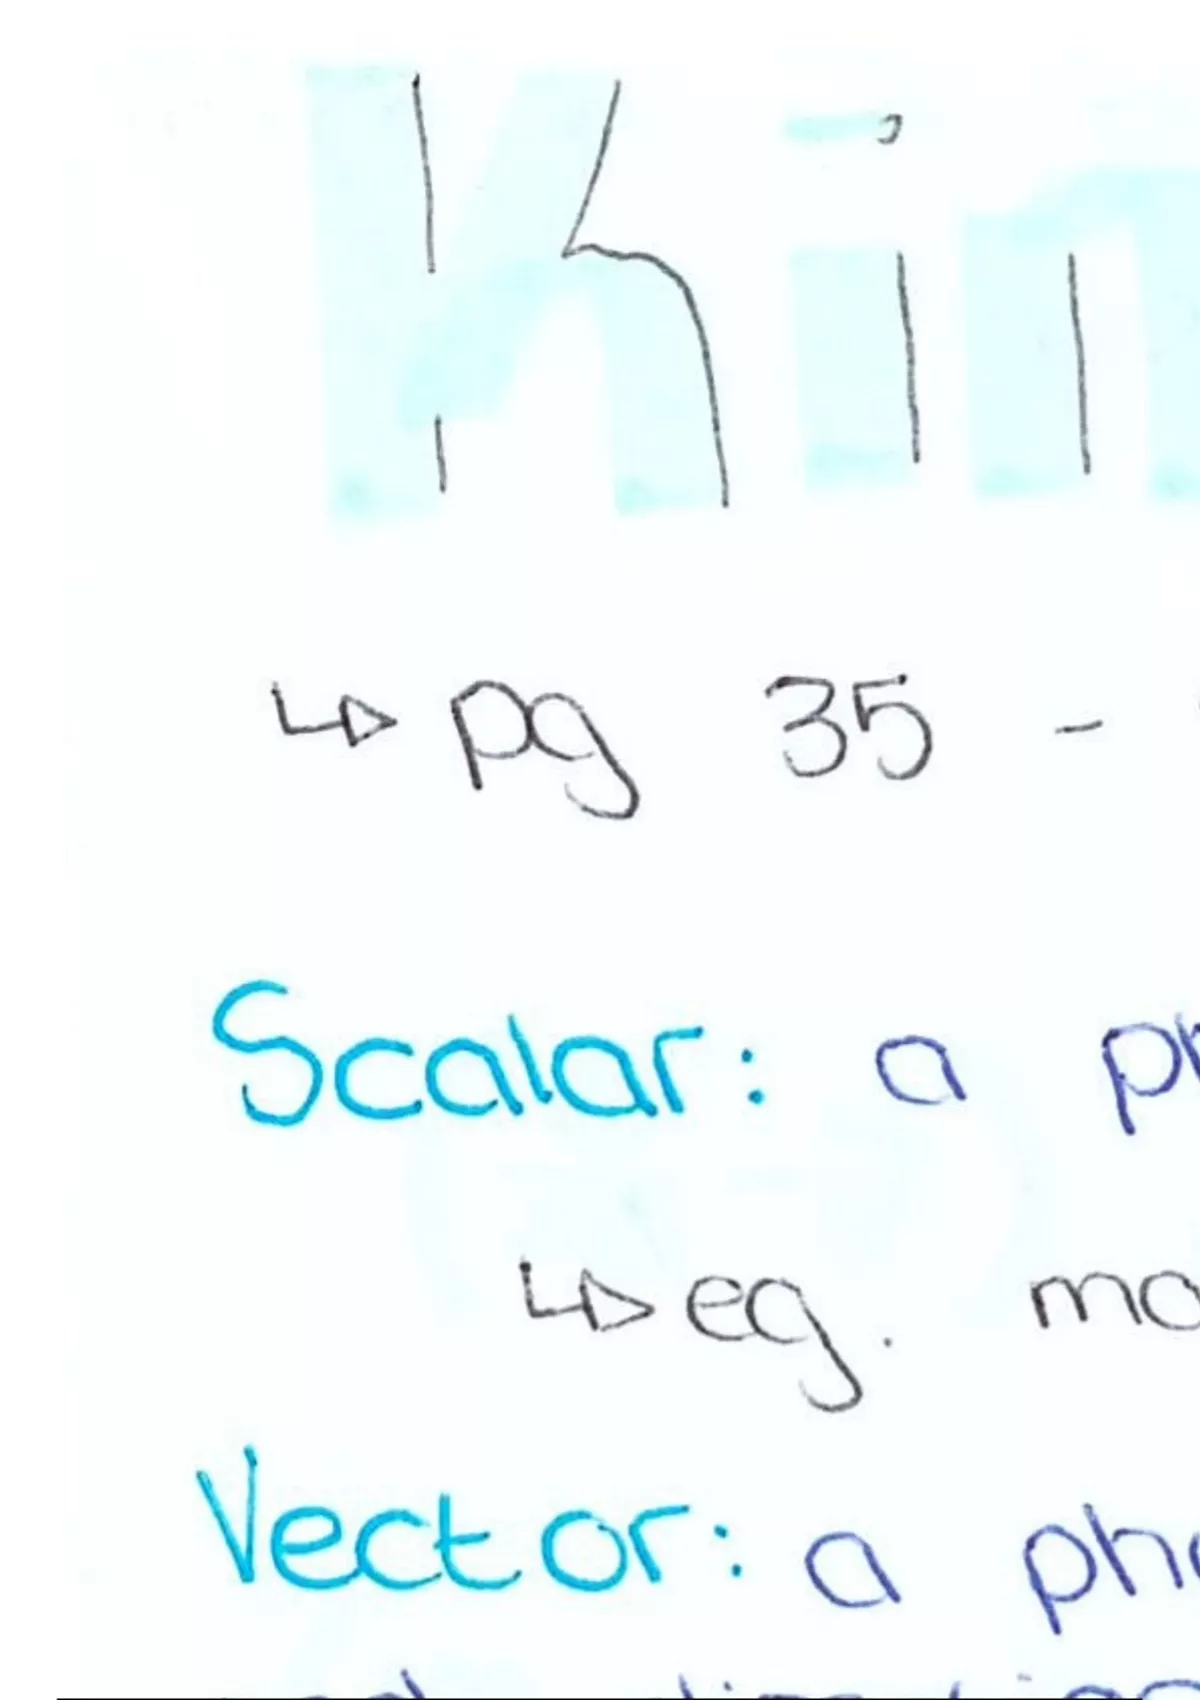 Kin
↳ pg 35 -
Scalar: a ph
↳ eg. ma
Vector: a phe